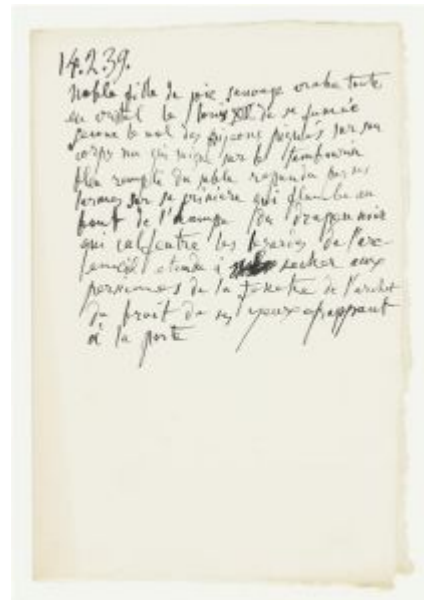 14.2.39.
noble fille de joie sauvage arabe toute
en cristal le Louis XIV de sa fumée
sonne le vol des pigeons peignés sur son
corps nu qui nage sur le tambourin
bleu rempli du sable répandu par ses
larmes sur sa crinière qui flambe au
bout de l'hampe du drapeau noir
qui calfeutre les de l'arc
en ciel étendu à sécher aux
persiennes de la fenêtre de l'archet
du bruit de ses yeux frappant
à la porte